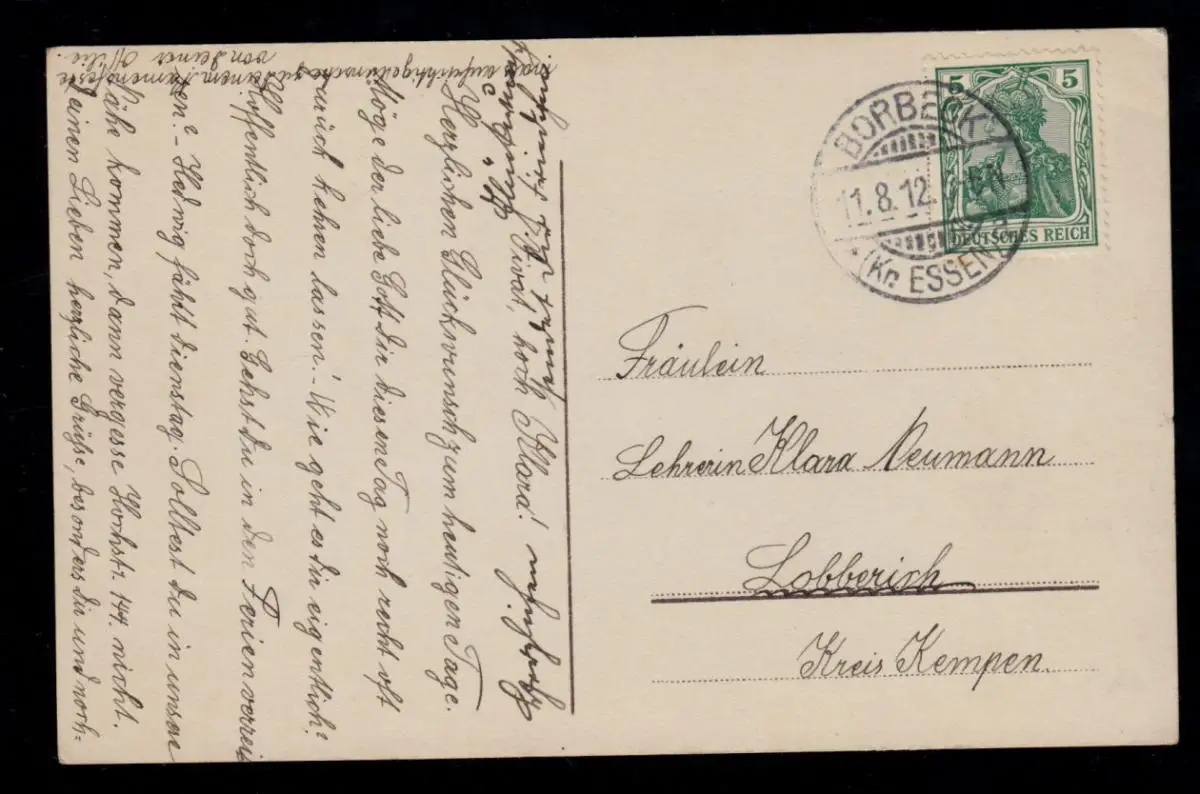 5 5
DEUTSCHES REICH
BORBECK
11.8.12.
(Kr. ESSEN)
Fräulein
Lehrerin Klara Neumann
Lobberich
Kreis Kempen.
Vivat, hoch Klara!
Herzlichen Glückwunsch zum heutigen Tage.
Möge der liebe Gott dir diesene Tag noch recht oft
zurück kehren lassen! - Wie geht es dir eigentlich?
Hoffentlich doch gut. Gehst du in den Ferien verrei
sen? - Hedwig fährt dienstag. Solltest du in unsere
Nähe kommen, dann vergesse Hochstr. 144. nicht.
Deinen Lieben herzliche Grüße, besonders dir und noch-
mals aufrichtige Glückwünsche zu deinem Namensfeste
von deiner